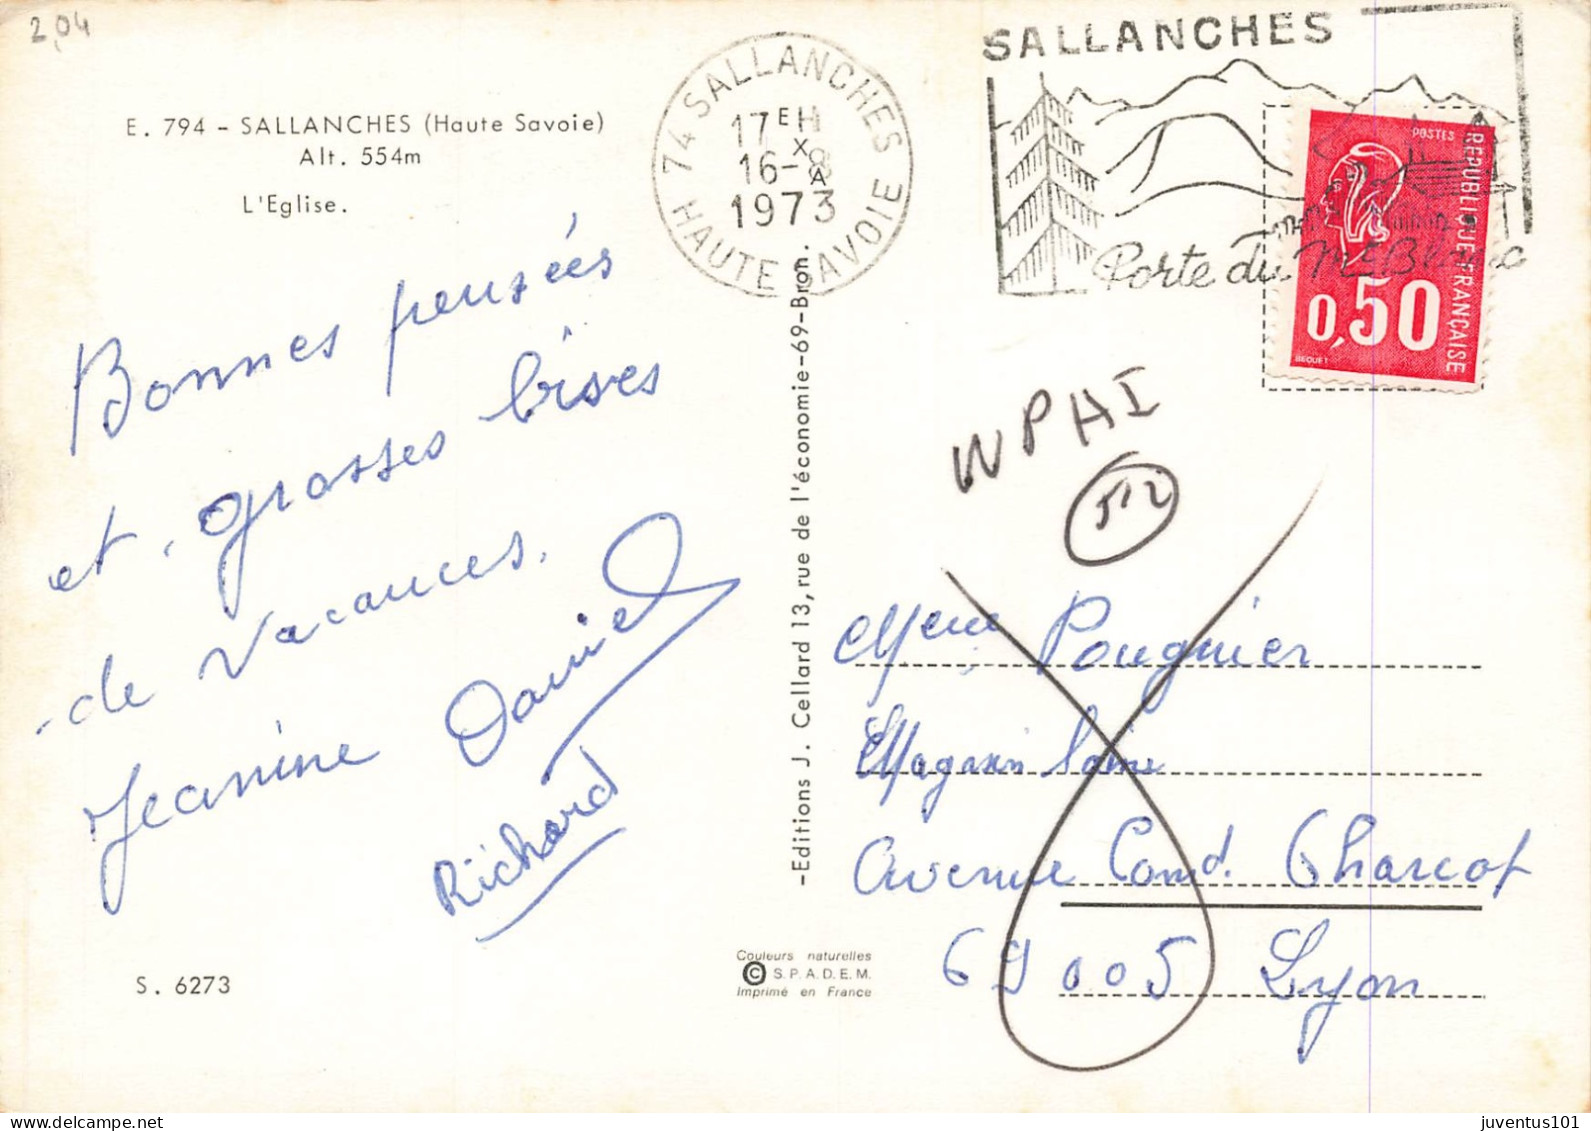 2,04
E. 794 - SALLANCHES (Haute Savoie)
Alt. 554m
L'Eglise.
Bonnes pensées
et grosses bises
de vacances.
Jeanine Daniel
Richard
S. 6273
74 SALLANCHES
17 EH
16-8
1973
HAUTE SAVOIE
SALLANCHES
Porte du Mt Blanc
POSTES
REPUBLIQUE FRANÇAISE
0,50
BEQUET
-Editions J. Cellard 13, rue de l'économie-69-Bron.
Couleurs naturelles
© S.P.A.D.E.M.
Imprimé en France
WPHI
512
Pouguier
Magasin
Avenue Comd. Charcot
69005 Lyon
juventus101